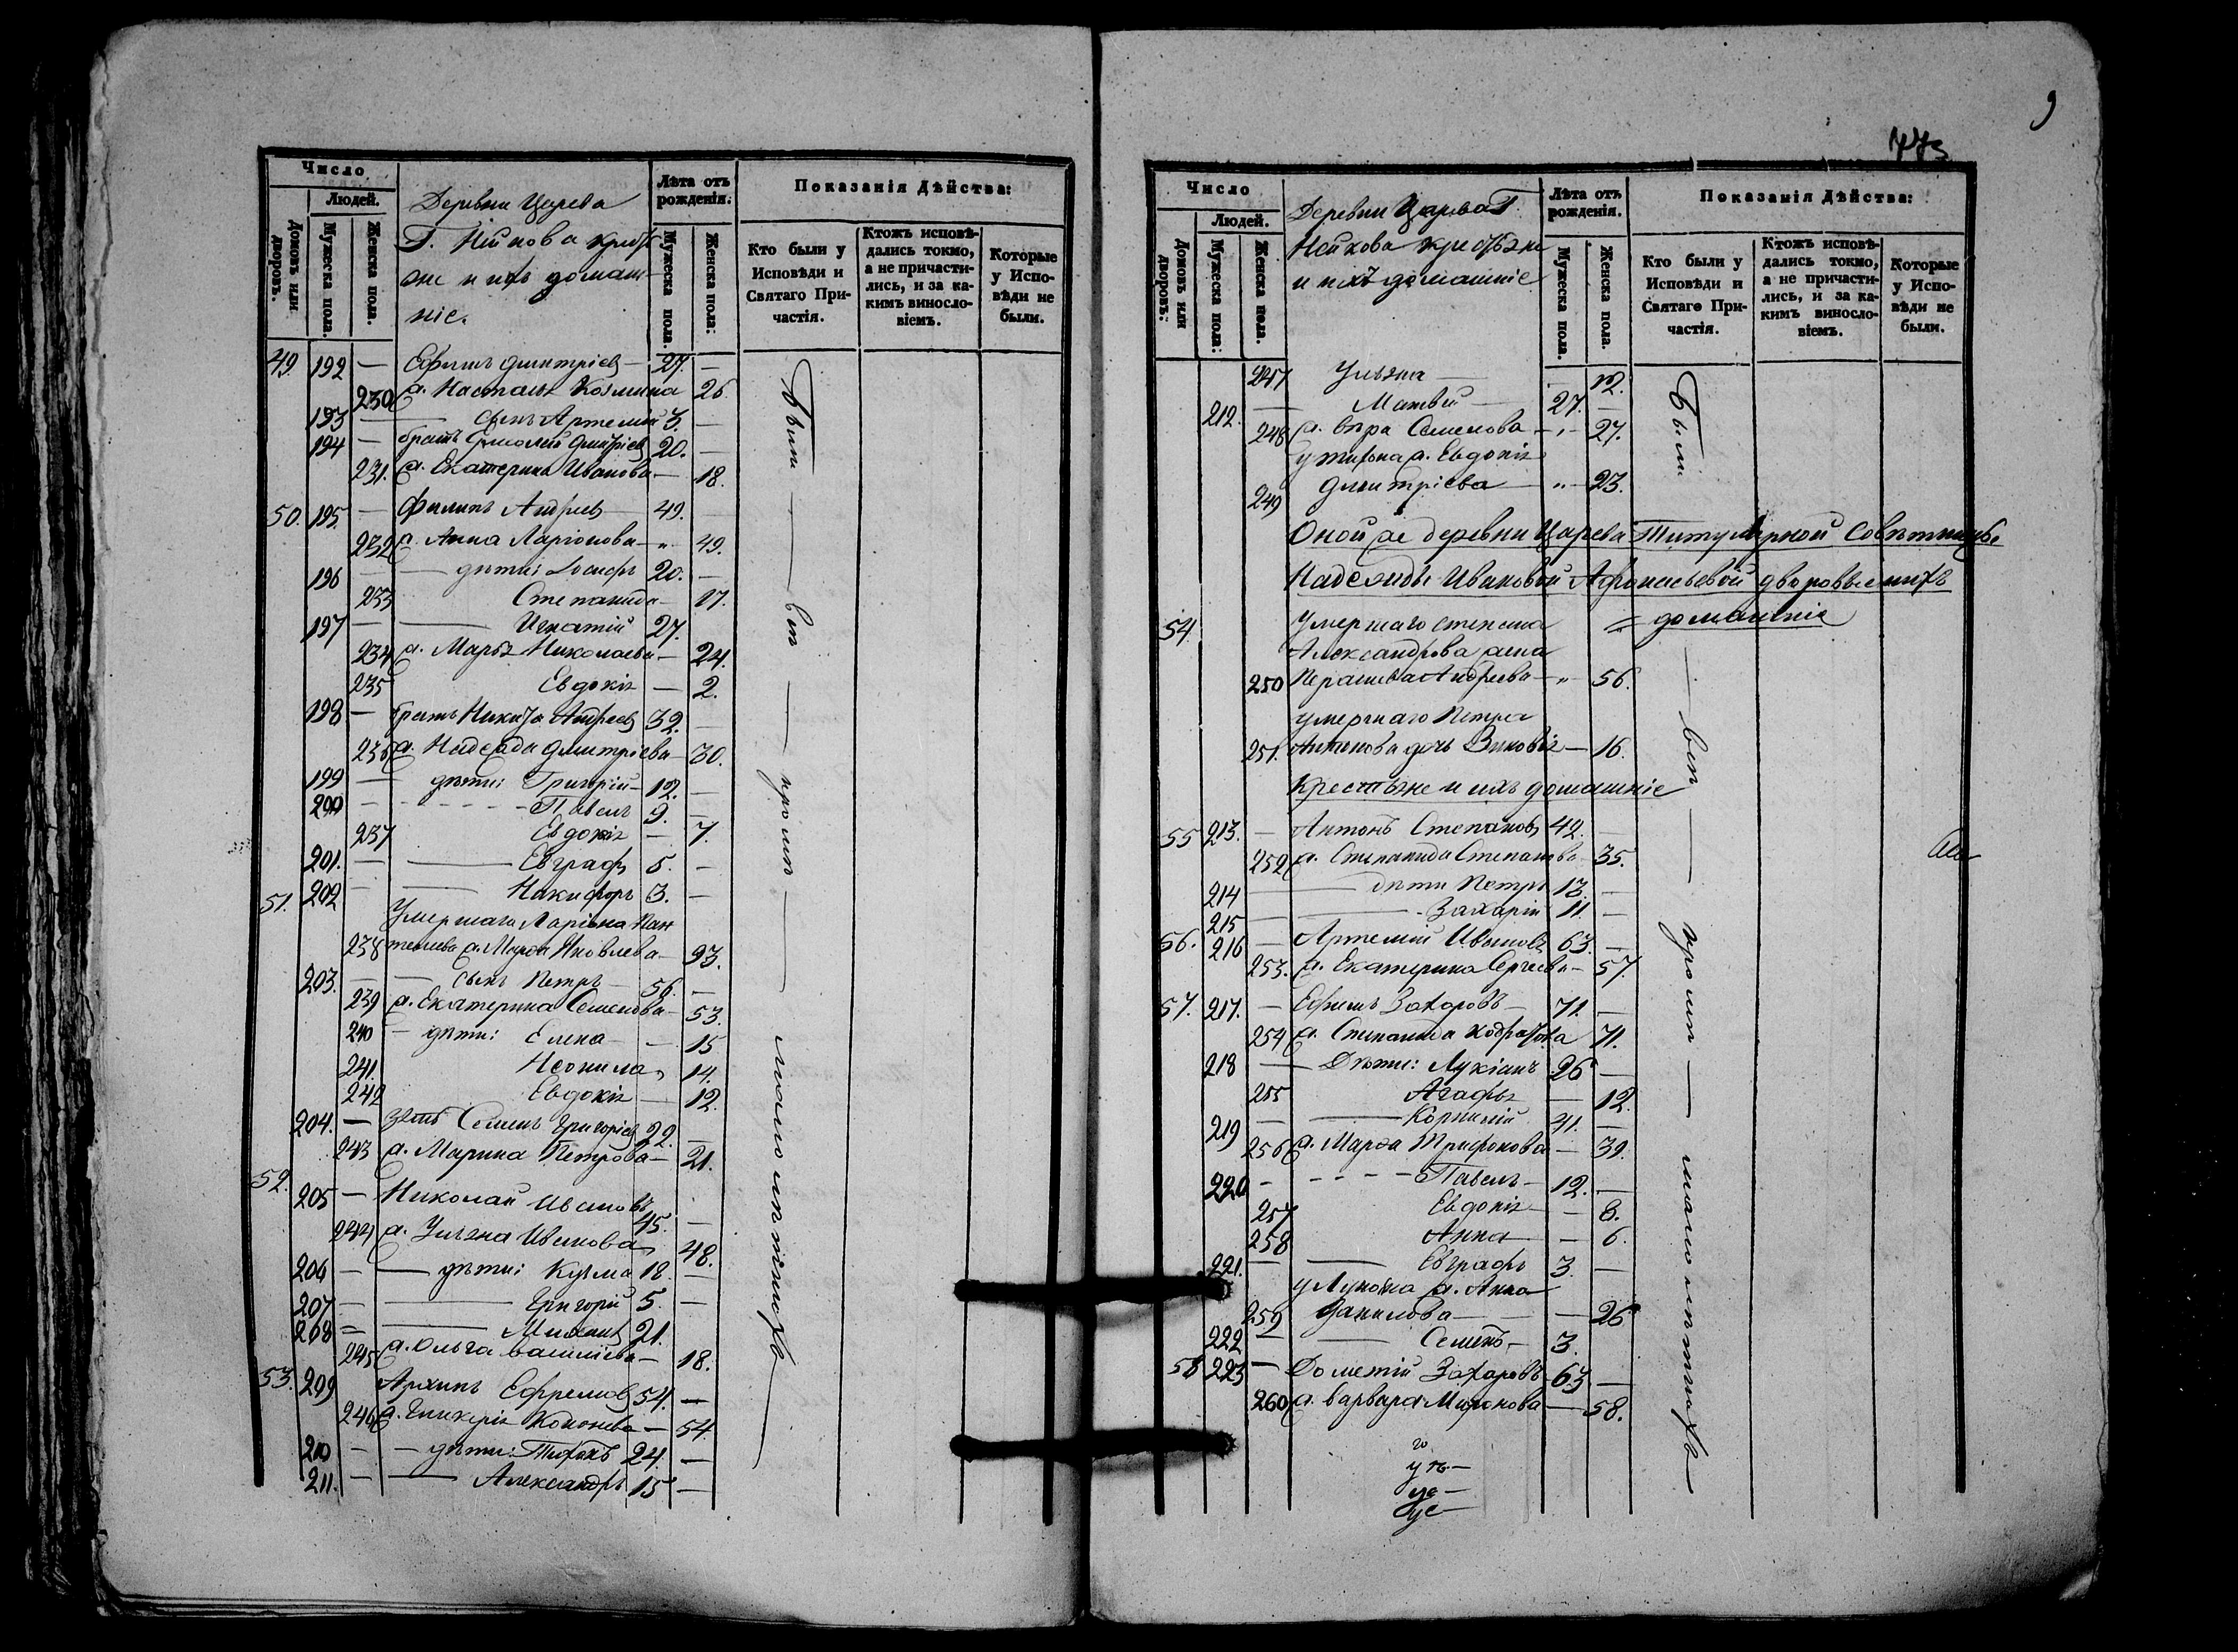 Число
Людей.
Домовъ или дворовъ.
Мужеска пола.
Женска пола.
Деревни Царева
Г. Нейкова крестья
не и ихъ домаш-
ніе.
Лѣта отъ рожденія.
Мужеска пола.
Женска пола:
Показанія Дѣйства:
Кто были у Исповѣди и Святаго При-частія.
Ктожъ исповѣ-дались токмо, а не причасти-лись, и за ка-кимъ виносло-віемъ.
Которые у Испо-вѣди не были.
49. 192 — Ефимъ Дмитріевъ — 27. —
230 ж. Настасья Козмина 26.
193 — сынъ Артемій 3. —
194 — братъ Дмитріевъ 20. —
231. ж. Екатерина Иванова — 18.
50. 195 — Филипъ Андреевъ 49. —
232 ж. Анна Ларіонова — " 49.
196 — дѣти: Іосифъ 20. —
233 Степанида — 17.
197 — Игнатій 27.
234 ж. Марья Николаева — 24.
235 Евдокія — 2.
198 — братъ Никита Андреевъ 32. —
236 ж. Надежда Дмитріева 30.
199 — дѣти: Григорій — 12. —
200 — Павелъ 9. —
237 Евдокія — 7.
201. — Евграфъ 5. —
202 — Никифоръ 3. —
51. Умершаго Ларіона Пан
238 телеева ж. Марфа Яковлева — 93.
203. — сынъ Петръ — 56. —
239 ж. Екатерина Семенова — 53.
240 — дѣти: Елена — 15
241 Неонила 14.
242 Евдокія — 12.
204. — зять Семенъ Григорьевъ 22. —
243 ж. Марина Петрова — 21.
52. 205 — Николай Ивановъ 45. —
244 ж. Ульяна Иванова 48.
206 — дѣти: Кузьма 18. —
207 — Григорій 5. —
208 — Михаилъ 21.
245 ж. Ольга Васильева — 18.
53. 209 Архипъ Ефремовъ 54. —
246 ж. Гликерія Кононова — 54
210 — дѣти: Тихонъ 24. —
211. — Александръ 15 —
были — вси — кромѣ — малолѣтнихъ
773
9
Число
Людей.
Домовъ или дворовъ:
Мужеска пола:
Женска пола.
Деревни Царева Г.
Нейкова крестьяне
и ихъ домашніе
Лѣта отъ рожденія.
Мужеска пола.
Женска пола.
Показанія Дѣйства:
Кто были у Исповѣди и Святаго При-частія.
Ктожъ исповѣ-дались токмо, а не причасти-лись, и за ка-кимъ винослo-віемъ.
Которые у Испо-вѣди не были.
247 Ульяна — 12.
212. — Матвей — 27. —
248 ж. Вера Семенова — " — 27.
у Тихона ж. Евдокія
249 Дмитріева — " — 23.
Оной же деревни Царева Титулярной Совѣтницы
Надежды Ивановой Афонасьевой дворовые и ихъ
домашніе
54. Умершаго Степана
Александрова жена
250 Андреева — " 56.
Умершаго Петра
251. Антонова дочь Зиновія — 16.
Крестьяне и ихъ домашніе
55 213. — Антонъ Степановъ 42. —
252 ж. Степанида Степанова 35.
214 — дѣти Петръ 13. —
215 — Захарій 11. —
56. 216 — Артемій Ивановъ 63. —
253. ж. Екатерина Сергѣева — 57.
57. 217. — Ефимъ Захаровъ — 71. —
254 ж. Степанида Кодратова 71.
218 — Дѣти: Лукіанъ 26 —
255 Агафья — 12.
219 — Корнилій 41. —
256 ж. Марфа Трифонова — 39.
220 — Павелъ — 12. —
257 Евдокія — 8.
258 Анна — 6.
221. — Евграфъ 3. —
у Лукьяна ж. Анна
259 Данилова — 26
222 — Семенъ — 3.
58 223 — Дометій Захаровъ 63 —
260 ж. Варвара Миронова — 58.
были — вси — кромѣ — малолѣтнихъ